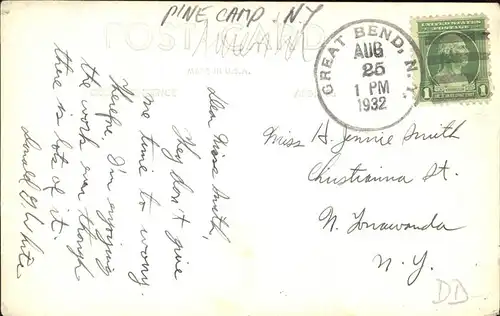 PINE CAMP, NY
POST CARD
MADE IN U.S.A.
GREAT BEND, N.Y.
AUG
25
1 PM
1932
UNITED STATES
POSTAGE
1 1
Dear Miss Smith,
They don't give
me time to worry.
Therefore, I'm enjoying
the work even though
there is lots of it.
Donald G. White
Miss H. Jennie Smith
Christianna St.
N. Tonawanda
N. Y.
DD